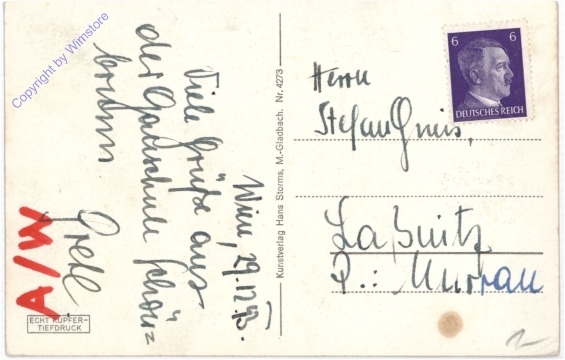 Copyright by Wimstore
Wien, 29.12.43.
Viele Grüße aus
der Gauschule Schön=
brunn
Gretl.
A/W
ECHT KUPFER-
TIEFDRUCK
Kunstverlag Hans Storms, M.-Gladbach. Nr. 4273
6 6
DEUTSCHES REICH
Herrn
Stefan
Laßnitz
P.: Murau